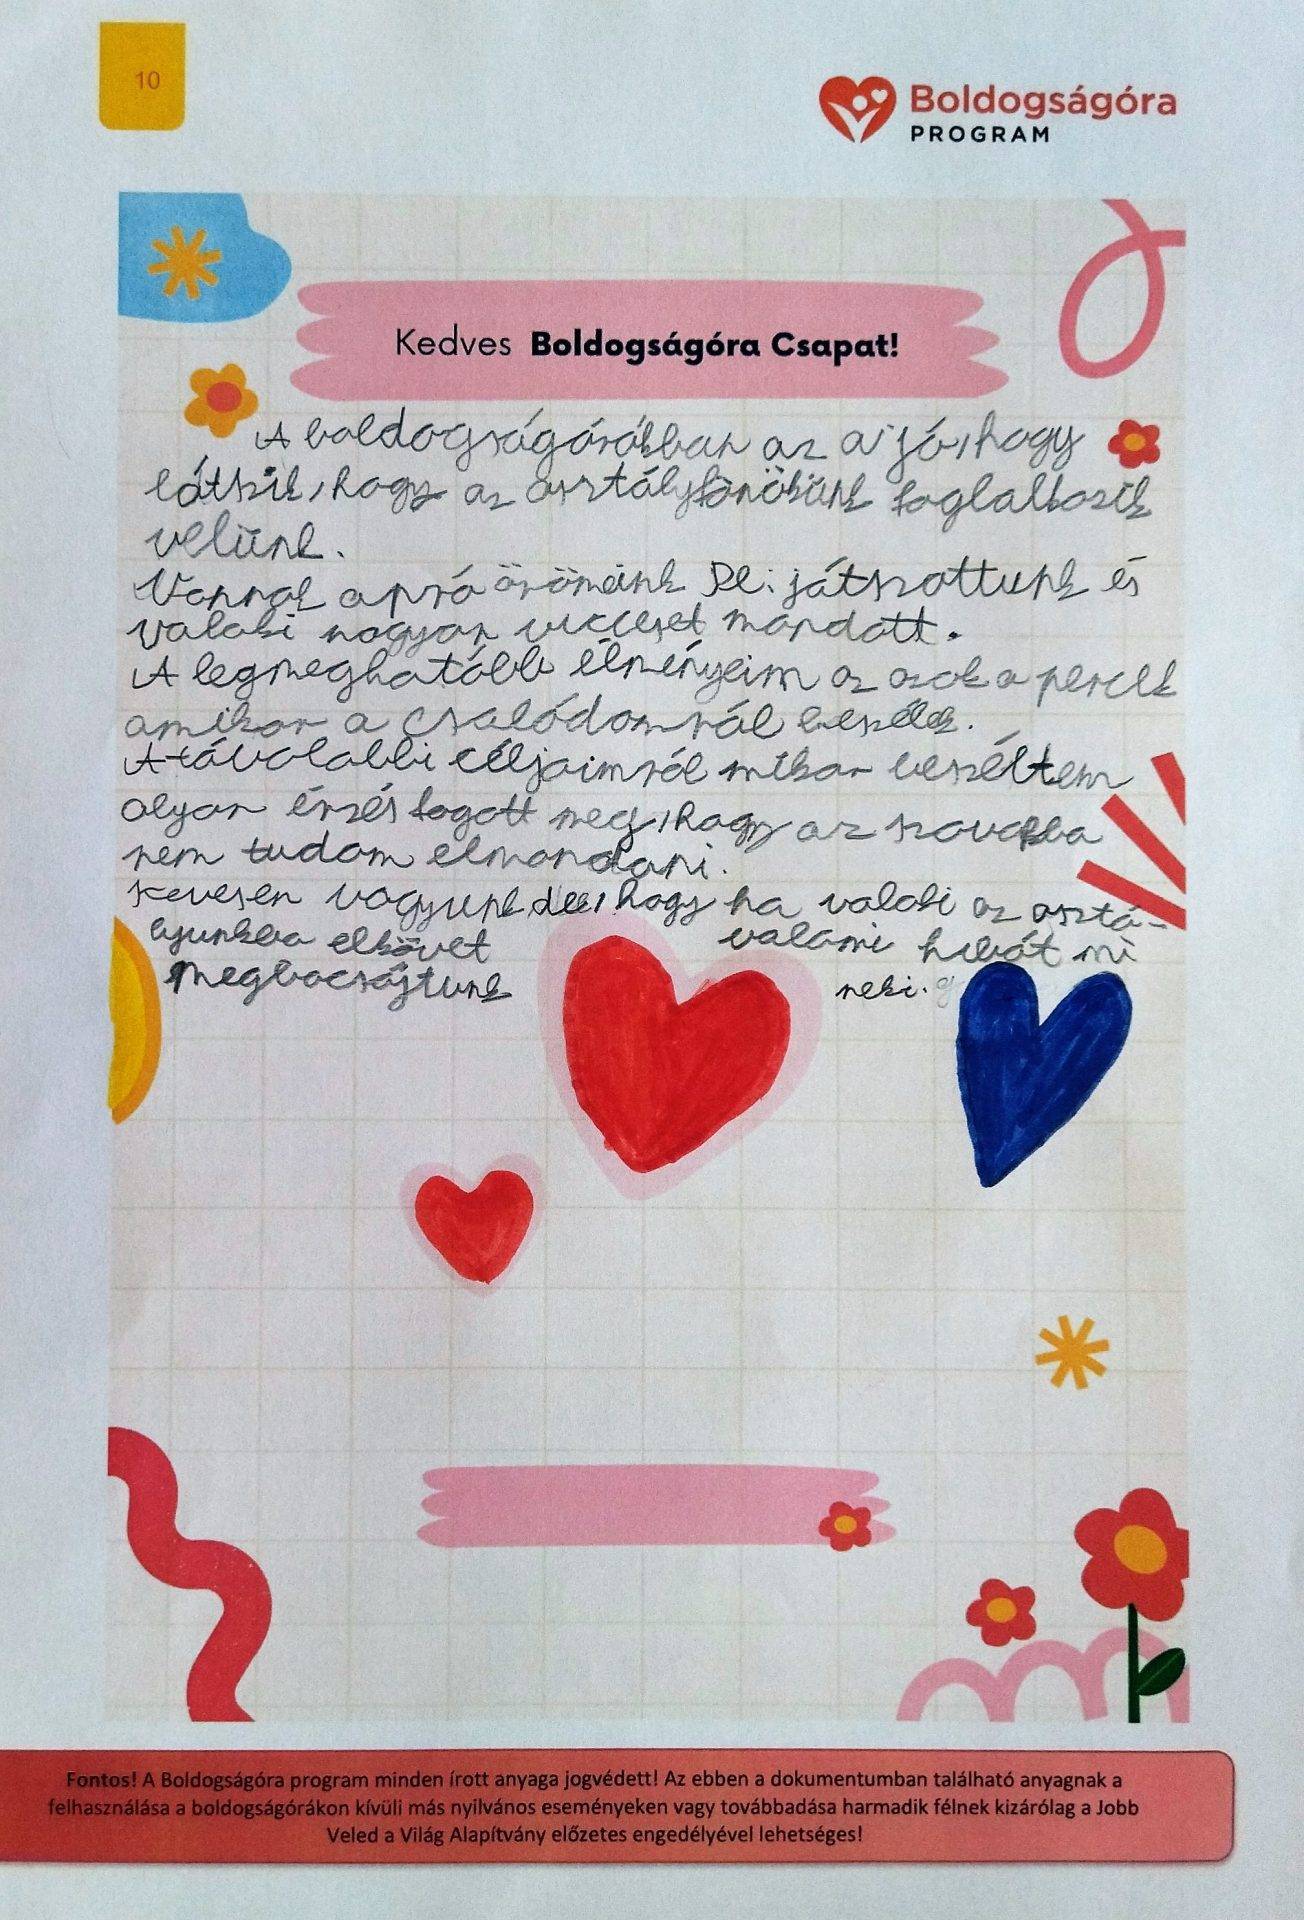 10
Boldogságóra
PROGRAM
Kedves Boldogságóra Csapat!
A boldogságórákban az a jó, hogy
látszik, hogy az osztályfőnökünk foglalkozik
velünk.
Vannak apró örömeink Pl: játszottunk és
valaki nagyon vicceset mondott.
A legmeghatóbb élményeim az azok a percek
amikor a családomról beszélek.
A távolabbi céljaimról mikor beszéltem
olyan érzés fogott meg, hogy az szavakba
nem tudom elmondani.
Kevesen vagyunk de, hogy ha valaki az osztá-
lyunkba elkövet valami hibát mi
megbocsájtunk neki.
Fontos! A Boldogságóra program minden írott anyaga jogvédett! Az ebben a dokumentumban található anyagnak a
felhasználása a boldogságórákon kívüli más nyilvános eseményeken vagy továbbadása harmadik félnek kizárólag a Jobb
Veled a Világ Alapítvány előzetes engedélyével lehetséges!